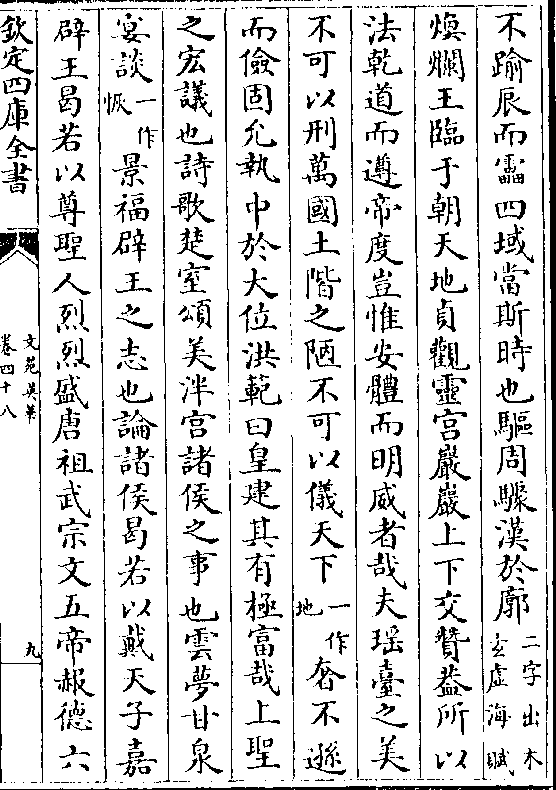 不踰辰而霤四域當斯時也驅周驟漢於廓二字出木玄虚海賦
煥爛王臨于朝天地貞觀靈宫巖巖上下交贊葢所以
法乾道而遵帝度豈惟安體而明威者哉夫瑶臺之美
不可以刑萬國土階之陋不可以儀天下一作地奢不遜
而儉固允執中於大位洪範曰皇建其有極富哉上聖
之宏議也詩歌楚室頌美泮宫諸侯之事也雲夢甘泉
宴談一作恢景福辟王之志也論諸侯曷若以戴天子嘉
辟王曷若以尊聖人烈烈盛唐祖武宗文五帝赧德六
欽定四庫全書
文苑英華
卷四十八
九